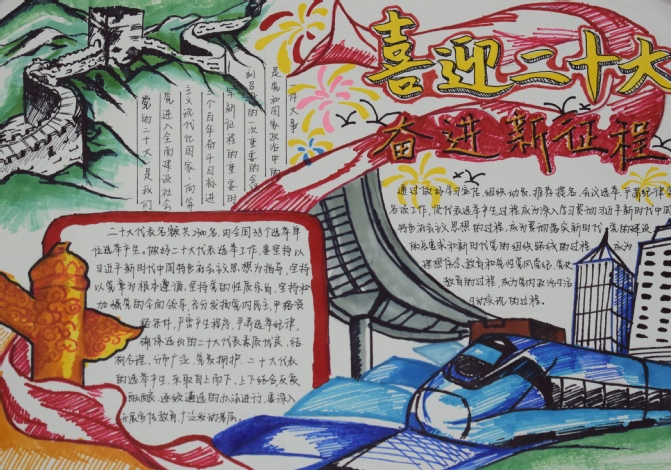 喜迎二十大
奋进新征程
党的二十大是我们
奋进入全面建设社会
主义现代化国家、向第
二个百年奋斗目标进
军新征程的重要时
刻召开的一次重要的会
是党和国家政治中的
件大事
二十大代表名额共2300名,由全国38个选举单
位选举产生。做好二十大代表选举工作,要坚持以
习近平新时代中国特色社会主义思想为指导,坚持
以党章为根本遵循,坚持党的性质宗旨,坚持和
加强党的全面领导,充分发扬党内民主,严格资
格条件,严密产生程序,严肃选举纪律,
确保选出的二十大代表素质优良、结
构合理、分布广泛、党员拥护。二十大代表
的选举产生,采取自上而下、上下结合、反复
酝酿、逐级遴选的办法进行,要深入
开展宣传教育,广泛发动基层
通过做好学习宣传、组织动员、推荐提名、会议选举、严肃纪律等
各项工作,使代表选举产生过程成为深入学习贯彻习近平新时代中国
特色社会主义思想的过程,成为贯彻落实新时代党的建设
的总要求和新时代党的组织路线的过程,成为
理想信念教育和党性党风党纪、党史
教育的过程,成为党内政治生活
的过程。